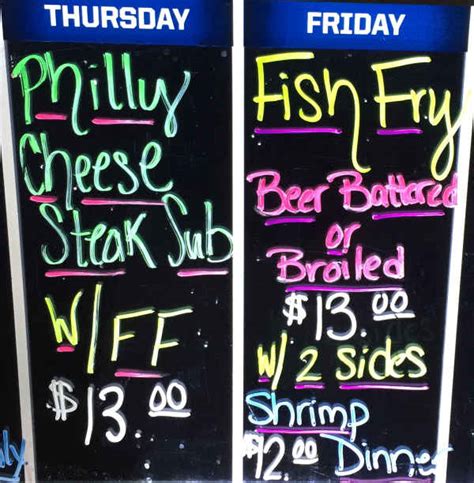 THURSDAY
Philly
Cheese
Steak Sub
W/FF
$13.00
FRIDAY
Fish Fry
Beer Battered
or
Broiled
$13.00
W/ 2 Sides
Shrimp
$12.00 Dinner